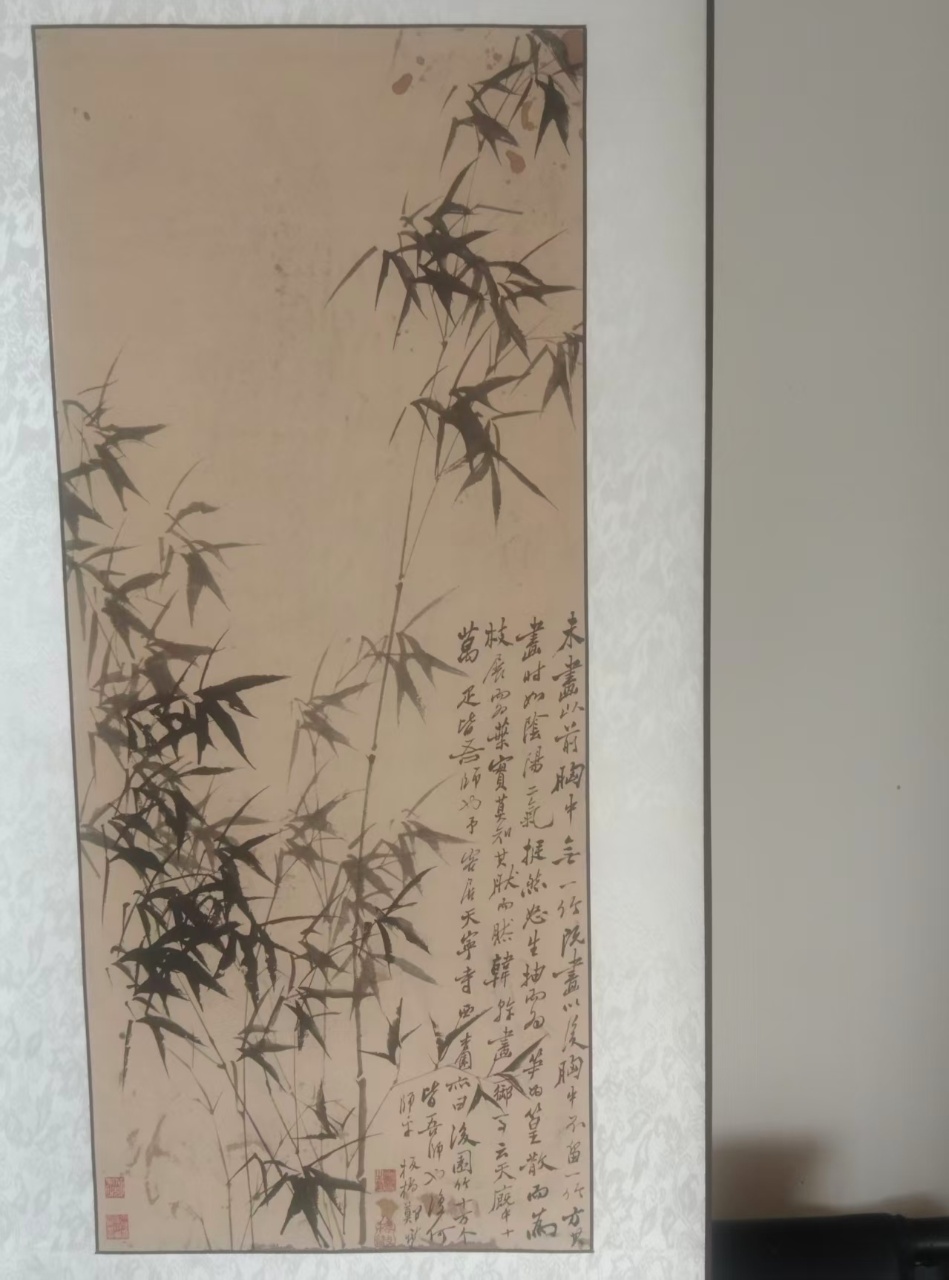 未畫以前胸中無一竹既畫以後胸中不留一竹方其
畫時如陰陽二氣挺然怒生抽而為筍為篁散而為
枝展而為葉實莫知其然而然韓幹畫御馬云天廄中十
萬疋皆吾師也予客居天寧寺西亦曰後園竹
皆吾師也復何
師乎 板橋鄭燮